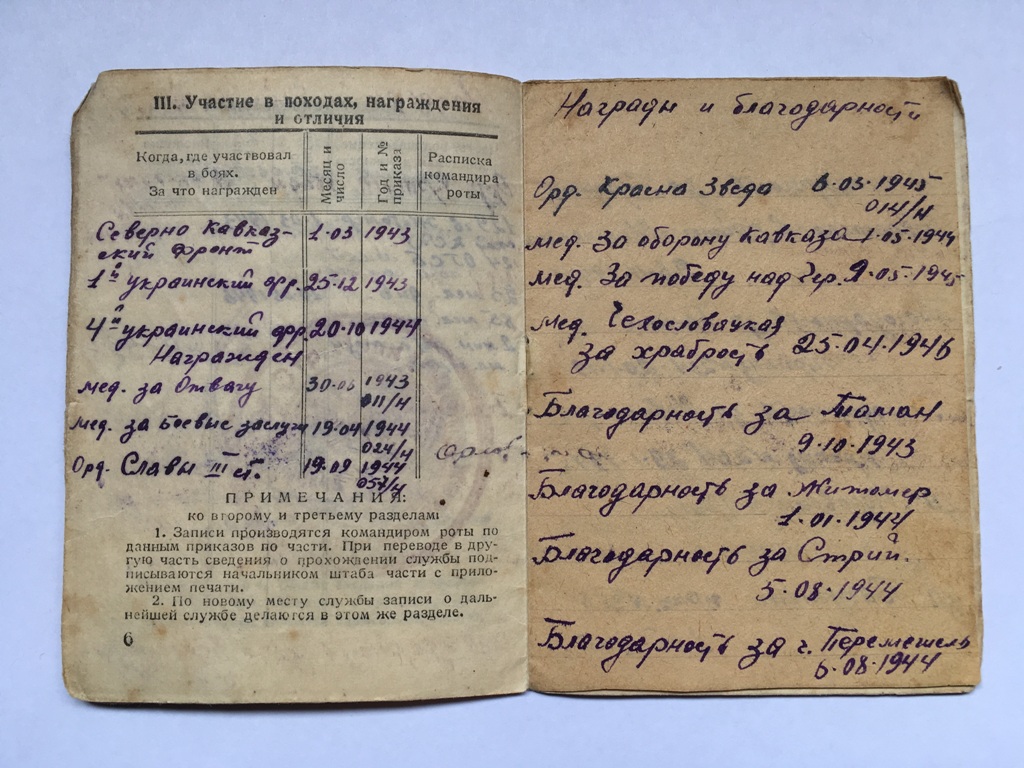 III. Участие в походах, награждения
и отличия
Когда, где участвовал
в боях.
За что награжден
Месяц и
число
Год и №
приказа
Расписка
командира
роты
Северно Кавказ-
ский фронт 1-03 1943
1й украинский фр. 25-12 1943
4й украинский фр. 20-10 1944
Награжден
мед. за Отвагу 30-03 1943
011/н
мед. за боевые заслуги 19-04 1944
024/н
Орд. Славы III ст. 19-09 1944
057/н
ПРИМЕЧАНИЯ:
ко второму и третьему разделам
1. Записи производятся командиром роты по
данным приказов по части. При переводе в дру-
гую часть сведения о прохождении службы под-
писываются начальником штаба части с прило-
жением печати.
2. По новому месту службы записи о даль-
нейшей службе делаются в этом же разделе.
6
Награды и благодарности
Орд. Красна Зведа 6-03-1945
014/н
мед. За оборону Кавказа 1-05-1944
мед. За победу над Гер. 9-05-1945
мед. Чехословацкая
за храбрость 25-04-1946
Благодарность за Таман
9-10-1943
Благодарность за Житомер
1-01-1944
Благодарность за Стрий.
5-08-1944
Благодарность за г. Перемешель
6-08-1944